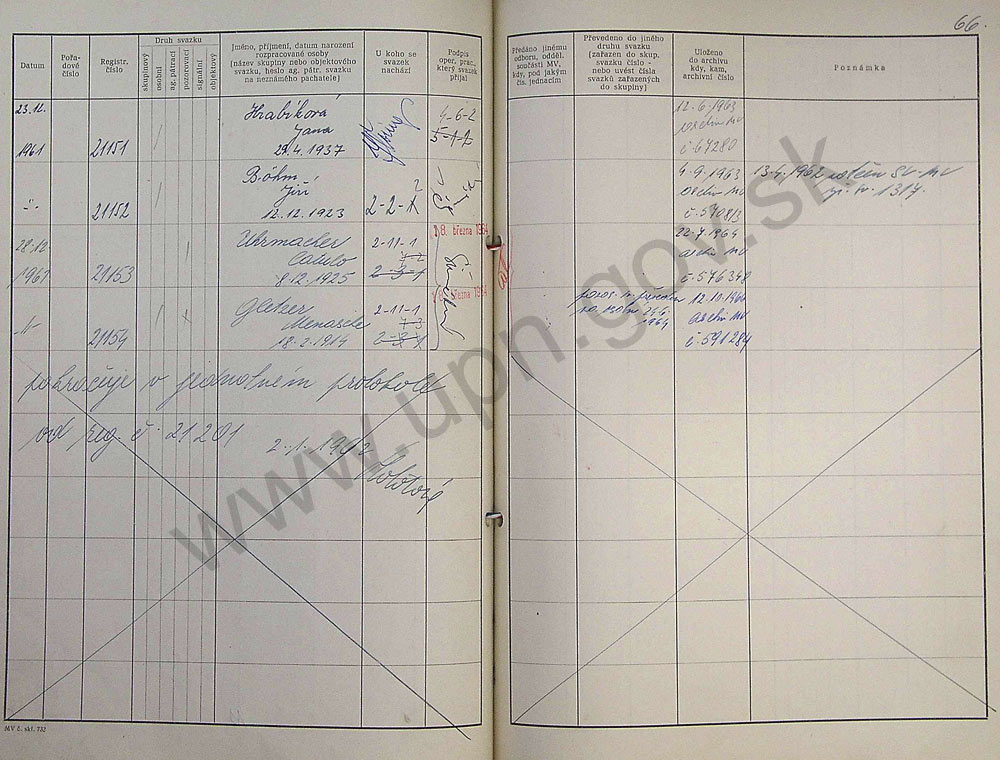 66.
Datum
Pořa-
dové
číslo
Registr.
číslo
Druh svazku
skupinový
osobní
ag. pátrací
pozorovací
signální
objektový
Jméno, příjmení, datum narození
rozpracované osoby
(název skupiny nebo objektového
svazku, heslo ag. pátr. svazku
na neznámého pachatele)
U koho se
svazek
nachází
Podpis
oper. prac.,
který svazek
přijal
Předáno jinému
odboru, odděl.
součásti MV,
kdy, pod jakým
čís. jednacím
Převedeno do jiného
druhu svazku
(zařazen do skup.
svazku číslo -
nebo uvést čísla
svazků zařazených
do skupiny)
Uloženo
do archivu
kdy, kam,
archivní číslo
Poznámka
23.12.
1961
21151
Hrabíková
Jana
29.4.1937
4-6-2
5-1-2
12.6.1963
archiv MV
č. 67280
21152
Böhm
Jiří
12.12.1923
2-2-1
4-9-1963
archiv MV
13.4.1962
28.12
1961
21153
Uhrmacher
8.12.1925
2-11-1
8. března 1964
22-7-1964
archiv MV
č. 576348
-"-
21154
Gletzer
Menasche
18.2.1914
2-11-1
7-3
března 1964
1964
12.10.1966
archiv MV
č. 591284
pokračuje v jednotném protokole
od reg. č. 21201
2.-1.-1962
www.upn.gov.sk
MV č. skl. 732